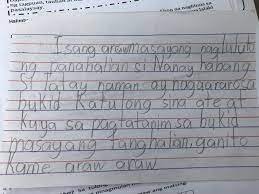 Halimb
Isang araw masayang nagluluto
ng pananghalian si Nanay habang
si Tatay naman ay nag aararo sa
bukid Katulong sina ate at
kuya sa pagtatanim sa bukid
masayang Tanghalian. ganito
kame araw araw